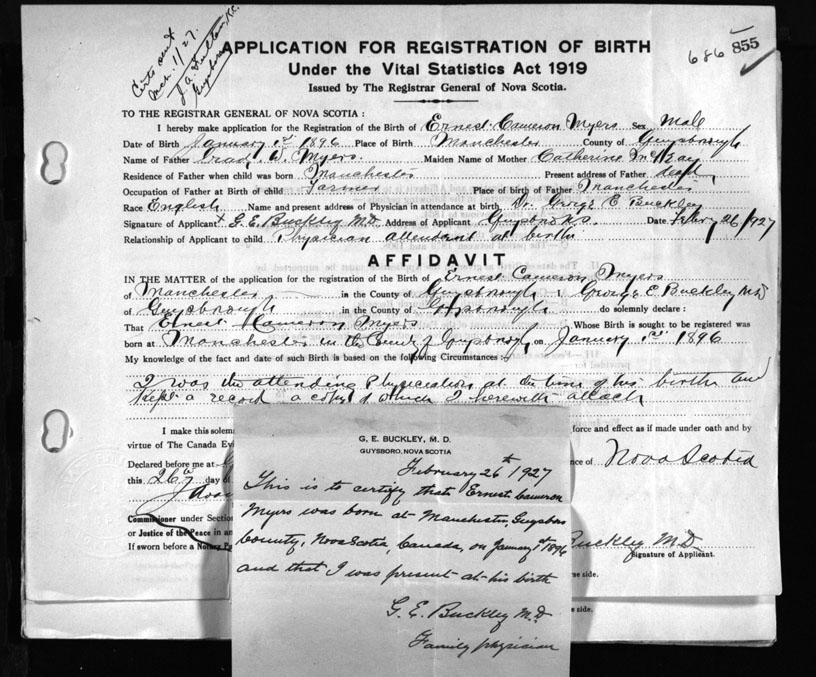 Certs sent
Mch. 11/27.
J. A. Fulton, K.C.
Guysboro
686 855
APPLICATION FOR REGISTRATION OF BIRTH
Under the Vital Statistics Act 1919
Issued by The Registrar General of Nova Scotia.
TO THE REGISTRAR GENERAL OF NOVA SCOTIA :
I hereby make application for the Registration of the Birth of Ernest Cameron Myers Sex Male
Date of Birth January 1st 1896 Place of Birth Manchester County of Guysborough
Name of Father W. Myers. Maiden Name of Mother Catherine McKay
Residence of Father when child was born Manchester Present address of Father dead
Occupation of Father at Birth of child Farmer Place of birth of Father Manchester
Race English Name and present address of Physician in attendance at birth Dr. George E Buckley
Signature of Applicant x G. E. Buckley M.D. Address of Applicant Guysboro N.S. Date Febry 26/1927
Relationship of Applicant to child Physician attendant at birth
AFFIDAVIT
IN THE MATTER of the application for the registration of the Birth of Ernest Cameron Myers
of Manchester in the County of Guysborough I George E Buckley M.D.
of Guysborough in the County of Guysborough do solemnly declare :
That Ernest Kameron Myers Whose Birth is sought to be registered was
born at Manchester in the County of Guysborough on January 1st 1896
My knowledge of the fact and date of such Birth is based on the following Circumstances :
I was the attending Physician at the time of his birth and
kept a record a copy of which I herewith attach
I make this solemn force and effect as if made under oath and by
virtue of The Canada Evi
Declared before me at nce of Nova Scotia
this 26th day of
Commissioner under Section
or Justice of the Peace in an Buckley M.D.
If sworn before a Notary Pu Signature of Applicant.
se side.
se side.
G. E. BUCKLEY, M. D.
GUYSBORO, NOVA SCOTIA
February 26th 1927
This is to certify that Ernest Cameron
Myers was born at Manchester, Guysboro
County, Nova Scotia, Canada, on January 1st 1896
and that I was present at his birth
G. E. Buckley M.D.
Family physician